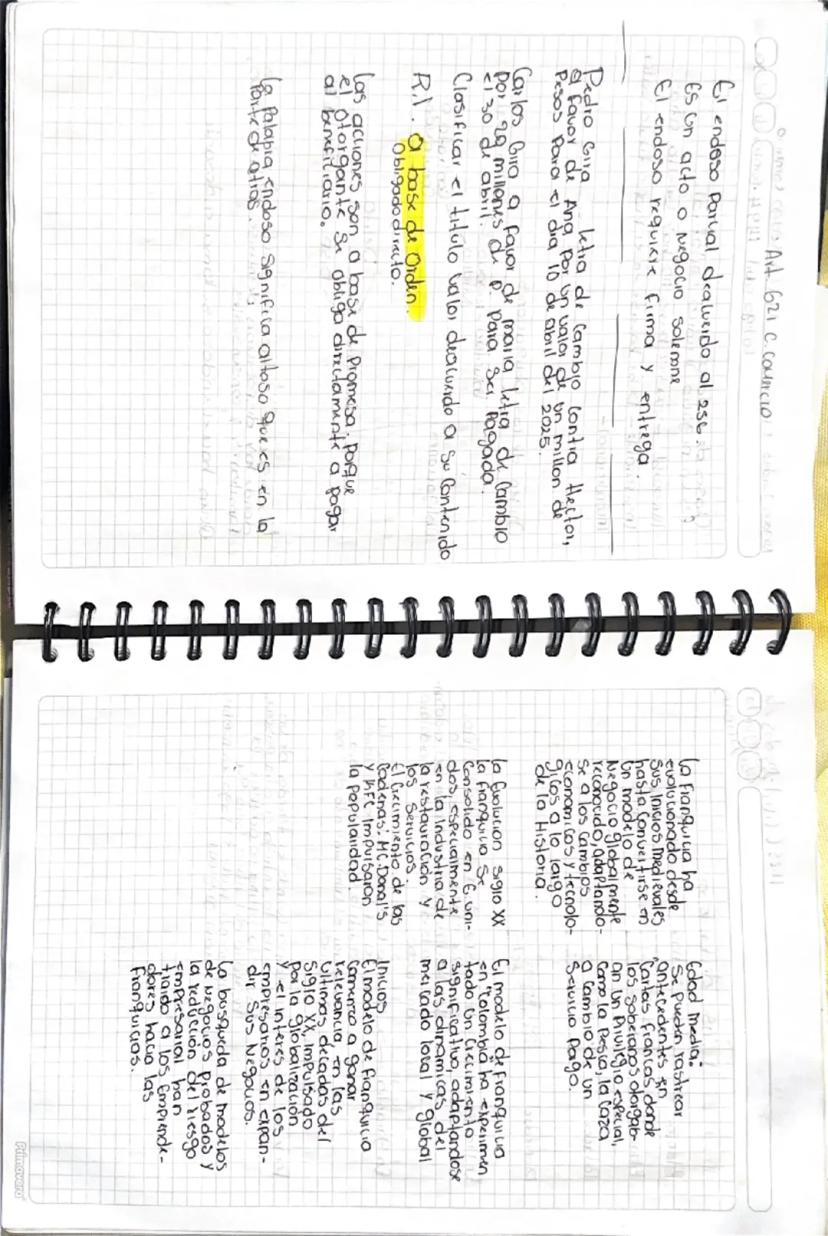 Art. 621 C. Comercio
El endoso Parcial deacuerdo al 256.
Es un acto o negocio solemne
El endoso requiere firma y entrega.
Pedro Gira letra de Cambio Contra Hector,
a favor de Ana, Por un valor de un millon de
Pesos Para el dia 10 de abril del 2025.
Carlos Gira a favor de maria letra de Cambio
por 20 millones de p. para ser Pagada.
el 30 de abril.
Clasificar el titulo valor deacuerdo a su Contenido
R.1. a base de Orden.
Obligado directo.
Las acciones son a base de Promesa; Porque
el otorgante se obliga directamente a pagar
al beneficiario.
la Palabra endoso significa al loso que es en la
Parte de atras.
La Franquicia ha
evolucionado desde
sus inicios medievales
hasta Convertirse en
Un modelo de
Negocio globalmente
reconocido, adaptando-
se a los Cambios
economicos y tecnolo-
gicos a lo largo
de la Historia.
la Evolucion siglo XX
la Franquicia Se
Consolido en E. uni-
dos, especialmente
en la industria de
la restauración y
los Servicios.
El Crecimiento de las
Cadenas: MC. Donal's
y KFC impulsaron
la popularidad.
Edad media:
Se Pueden rastrear
antecedentes en
Cartas Francas donde
los soberanos otorgab-
an un Privilegio especial,
como la Pesca, la Caza
a Cambio de un
Servicio Pago.
El modelo de Franquicia
en "Colombia" ha experimen
tado Un Crecimiento
significativo, adaptandose
a las dinamicas del
mercado local y global
Inicios
El modelo de franquicia
Comenzo a ganar
relevancia en las
Ultimas decadas del
Siglo XX, impulsado
Por la globalización
y el interes de los
empresarios en expan-
dir Sus Negocios.
La busqueda de modelos
de negocios probados y
la reducción del riesgo
empresarial han
traido a los Emprende-
dores hacia las
Franquicias.
Primavera